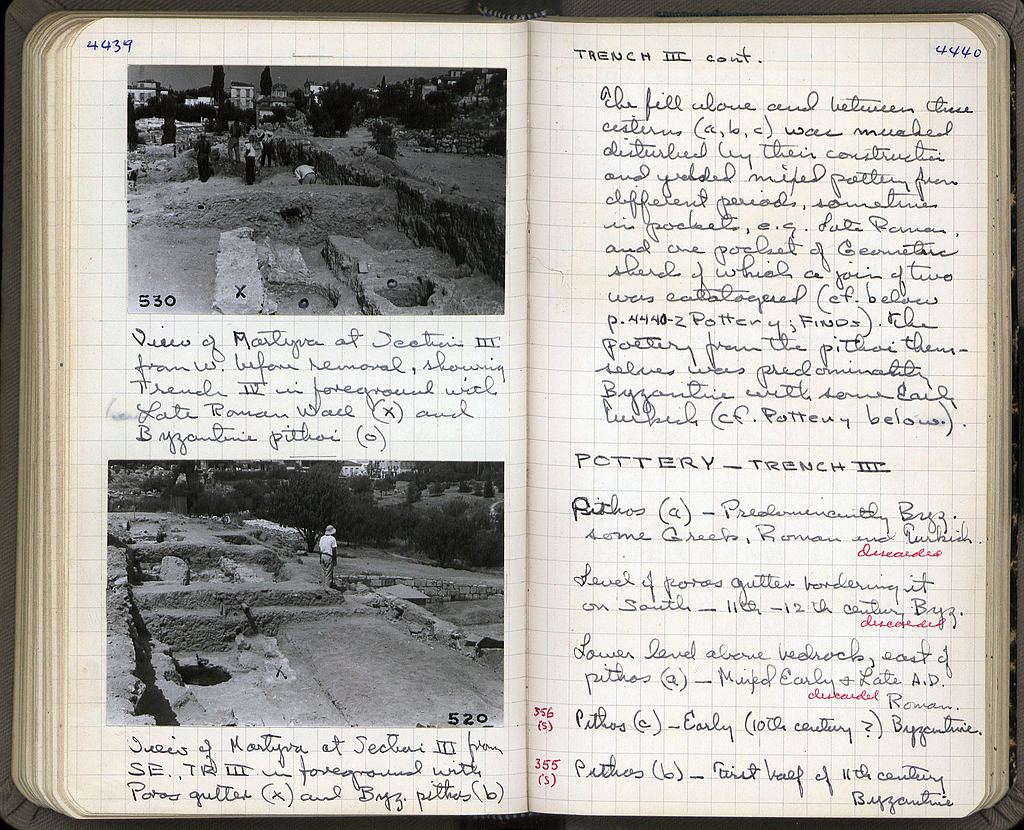 4439
530
View of Martyra at Section III
from W. before removal, showing
Trench IV in foreground with
Late Roman Wall (x) and
Byzantine pithoi (o)
520
View of Martyra at Section III from
SE., TR III in foreground with
Poros gutter (x) and Byz. pithos (b)
4440
TRENCH III cont.
The fill above and between these
cisterns (a, b, c) was much
disturbed by their construction
and yielded mixed pottery from
different periods, sometimes
in pockets, e.g. Late Roman,
and one pocket of Geometric
sherds of which a join of two
was catalogued (cf. below
p. 4440-2 Pottery; FINDS). The
pottery from the pithoi them-
selves was predominately
Byzantine with some Early
Turkish (cf. Pottery below).
POTTERY – TRENCH III
Pithos (a) – Predominantly Byz.
some Greek, Roman and Turkish.
discarded
Level of poros gutter bordering it
on South – 11th – 12th century Byz.
discarded
Lower level above bedrock, east of
pithos (a) – Mixed Early & Late A.D.
discarded Roman.
356 (S) Pithos (c) – Early (10th century ?) Byzantine.
355 (S) Pithos (b) – First half of 11th century
Byzantine